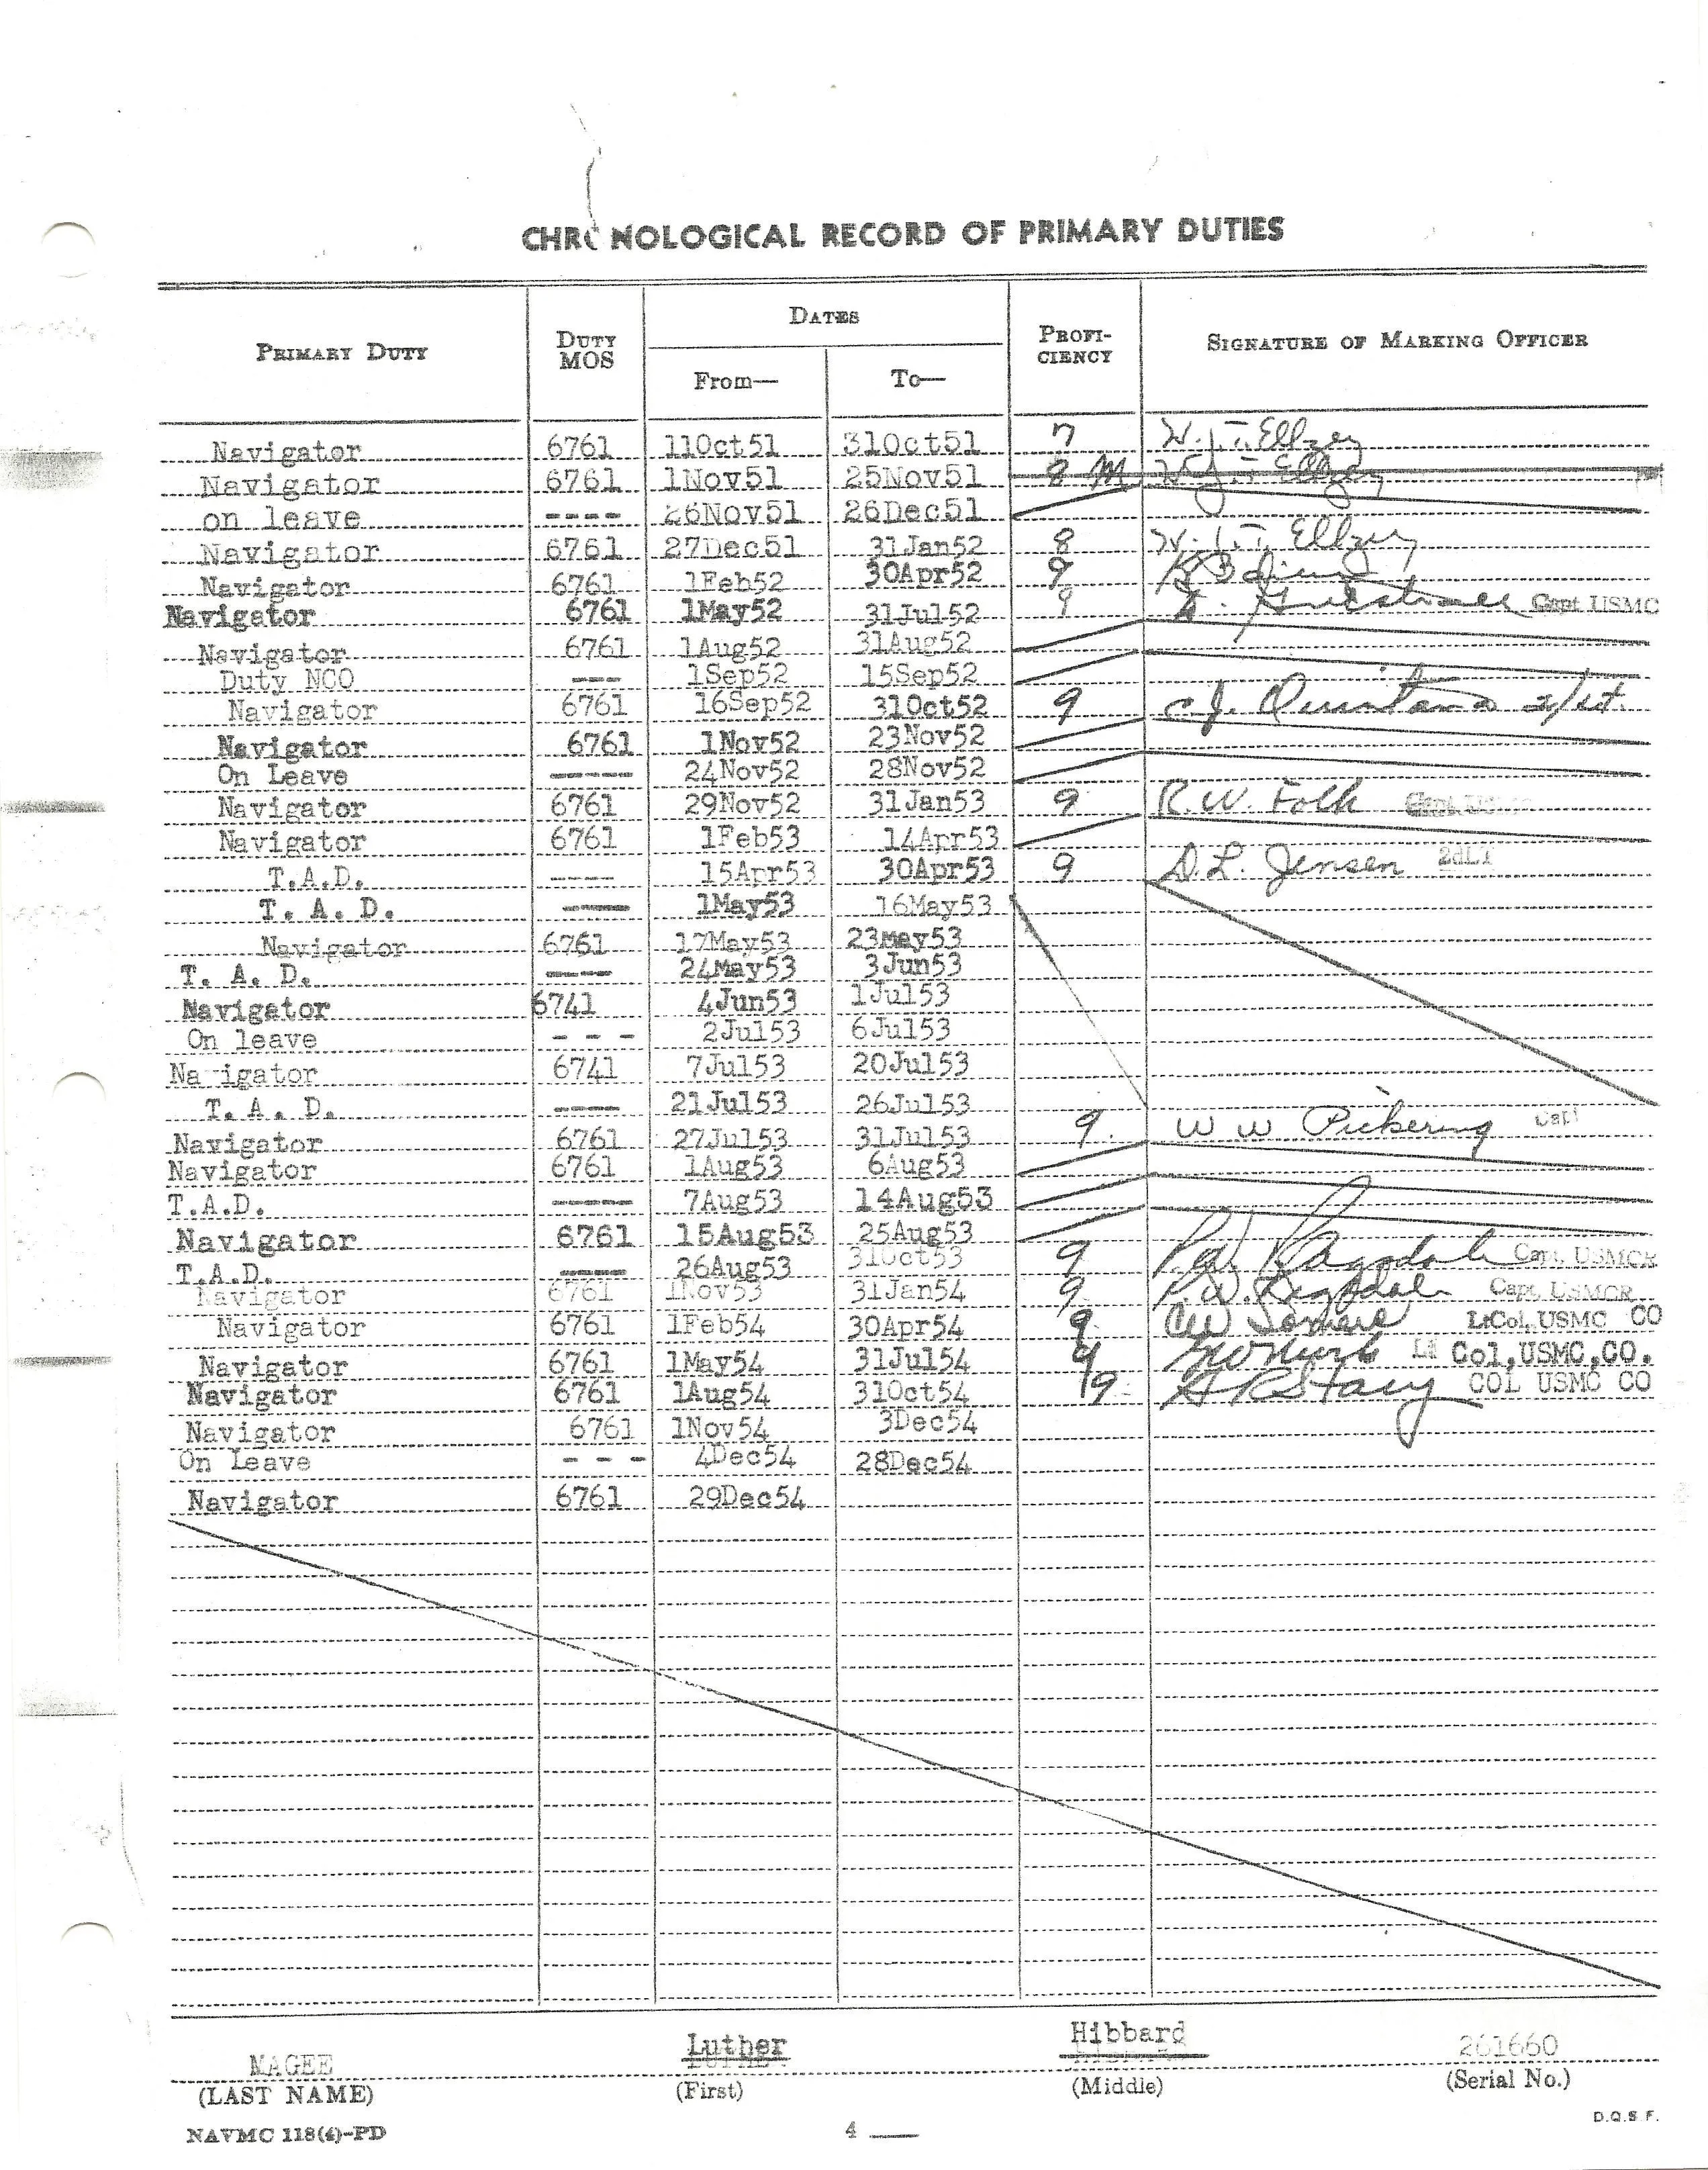 CHRONOLOGICAL RECORD OF PRIMARY DUTIES
PRIMARY DUTY DUTY MOS DATES From— To— PROFI-CIENCY SIGNATURE OF MARKING OFFICER
Navigator 6761 11Oct51 31Oct51 7 W. J. T. Ellzey
Navigator 6761 1Nov51 25Nov51 8 M W. J. T. Ellzey
on leave ---- 26Nov51 26Dec51
Navigator 6761 27Dec51 31Jan52 8 W. J. T. Ellzey
Navigator 6761 1Feb52 30Apr52 9
Navigator 6761 1May52 31Jul52 9 Capt USMC
Navigator 6761 1Aug52 31Aug52
Duty NCO --- 1Sep52 15Sep52
Navigator 6761 16Sep52 31Oct52 9 C. J. Quintana
Navigator 6761 1Nov52 23Nov52
On Leave ---- 24Nov52 28Nov52
Navigator 6761 29Nov52 31Jan53 9 R. W. Folk
Navigator 6761 1Feb53 14Apr53
T.A.D. ---- 15Apr53 30Apr53 9 D. L. Jensen 2dLT
T. A. D. ---- 1May53 16May53
Navigator 6761 17May53 23may53
T. A. D. ---- 24May53 3Jun53
Navigator 6741 4Jun53 1Jul53
On leave - - - 2Jul53 6Jul53
Na igator 6741 7Jul53 20Jul53
T. A. D. ---- 21Jul53 26Jul53
Navigator 6761 27Jul53 31Jul53 9. W W Pickering Capt
Navigator 6761 1Aug53 6Aug53
T.A.D. ---- 7Aug53 14Aug53
Navigator 6761 15Aug53 25Aug53
T.A.D. ---- 26Aug53 31Oct53 9 P. W. Ragsdale Capt. USMCR
Navigator 6761 1Nov53 31Jan54 9 P. W. Ragsdale Capt. USMCR
Navigator 6761 1Feb54 30Apr54 9 LtCol, USMC CO
Navigator 6761 1May54 31Jul54 9 Lt Col, USMC, CO.
Navigator 6761 1Aug54 31Oct54 9 COL USMC CO
Navigator 6761 1Nov54 3Dec54
On Leave - - - 4Dec54 28Dec54
Navigator 6761 29Dec54
MAGEE Luther Hibbard 261660
(LAST NAME) (First) (Middle) (Serial No.)
NAVMC 118(4)-PD 4 D.Q.S F.